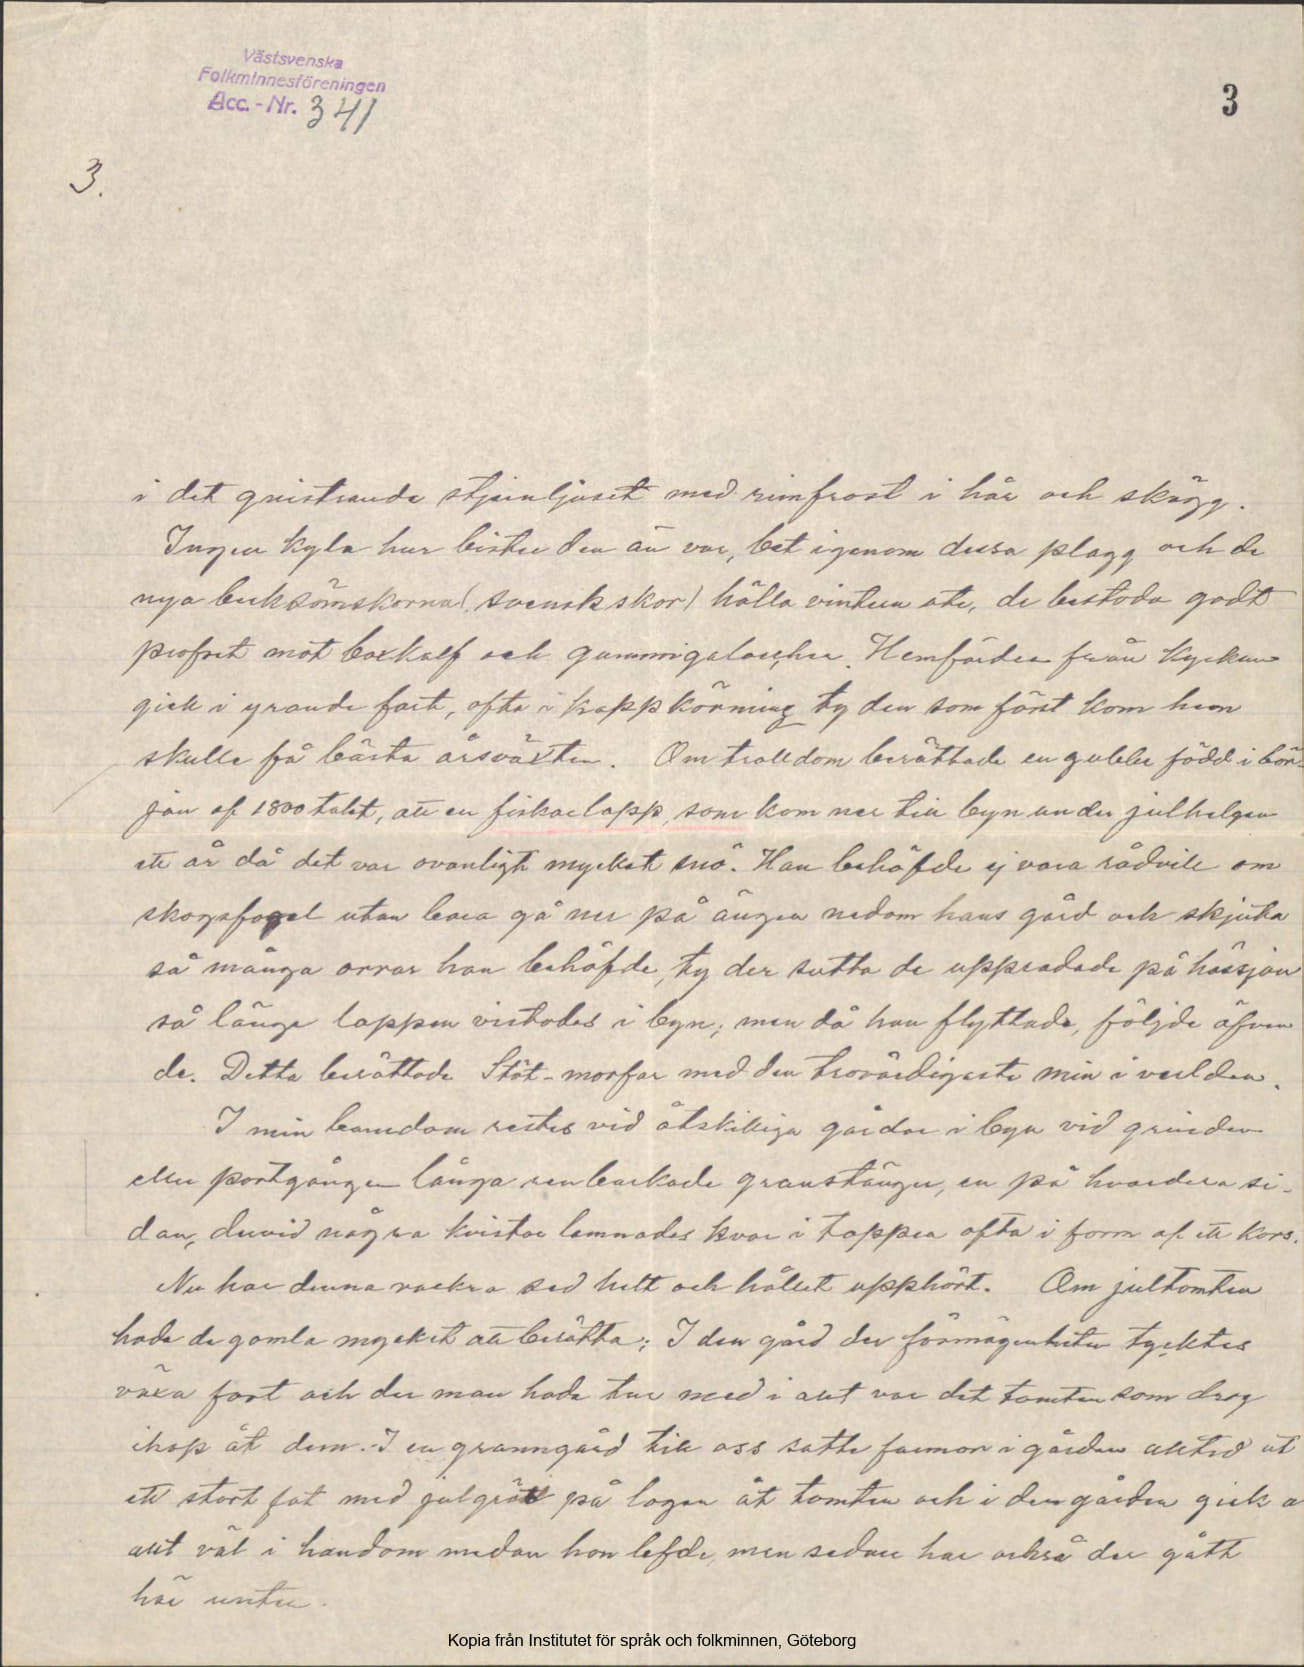 Västsvenska
Folkminnesföreningen
Acc.-Nr. 341
3
3.
i det gnistrande stjernljuset med rimfrost i hår och skägg.
Ingen kyla hur bister den än var, bet igenom dessa plagg och de
nya becksömskorna (svenskskor) hålla vintern ute, de bestodo godt
profvet mot boxkalf och gummigaloscher. Hemfärden från Kyrkan
gick i yrande fart, ofta i kappkörning ty den som först kom hem
skulle få bästa årsväxten. Om trolldom berättade en gubbe född i bör-
jan af 1800 talet, att en fiskarlapp, som kom ner till byn under julhelgen
ett år då det var ovanligt mycket snö. Han behöfde ej vara rådvill om
skogsfogel utan bara gå ner på ängen nedom hans gård och skjuta
så många orrar han behöfde, ty der sutto de uppradade på hässjan
så länge lappen vistades i byn; men då han flyttade, följde äfven
de. Detta berättade Stöt-morfar med den trovärdigaste min i verlden.
I min barndom restes vid åtskilliga gårdar i byn vid grinden
eller portgången långa renbarkade granstänger, en på hvardera si-
dan, dervid några kvistar lemnades kvar i toppen ofta i form af ett kors.
Nu har denna vackra sed helt och hållet upphört. Om jultomten
hade de gamla mycket att berätta; I den gård der förmögenheten tycktes
växa fort och der man hade tur med i allt var det tomten som drog
ihop åt dem. I en granngård till oss satte farmor i gården alltid ut
ett stort fat med julgröt på logen åt tomten och i den gården gick a
allt väl i handom medan hon lefde, men sedan har också der gått
här unter.
Kopia från Institutet för språk och folkminnen, Göteborg